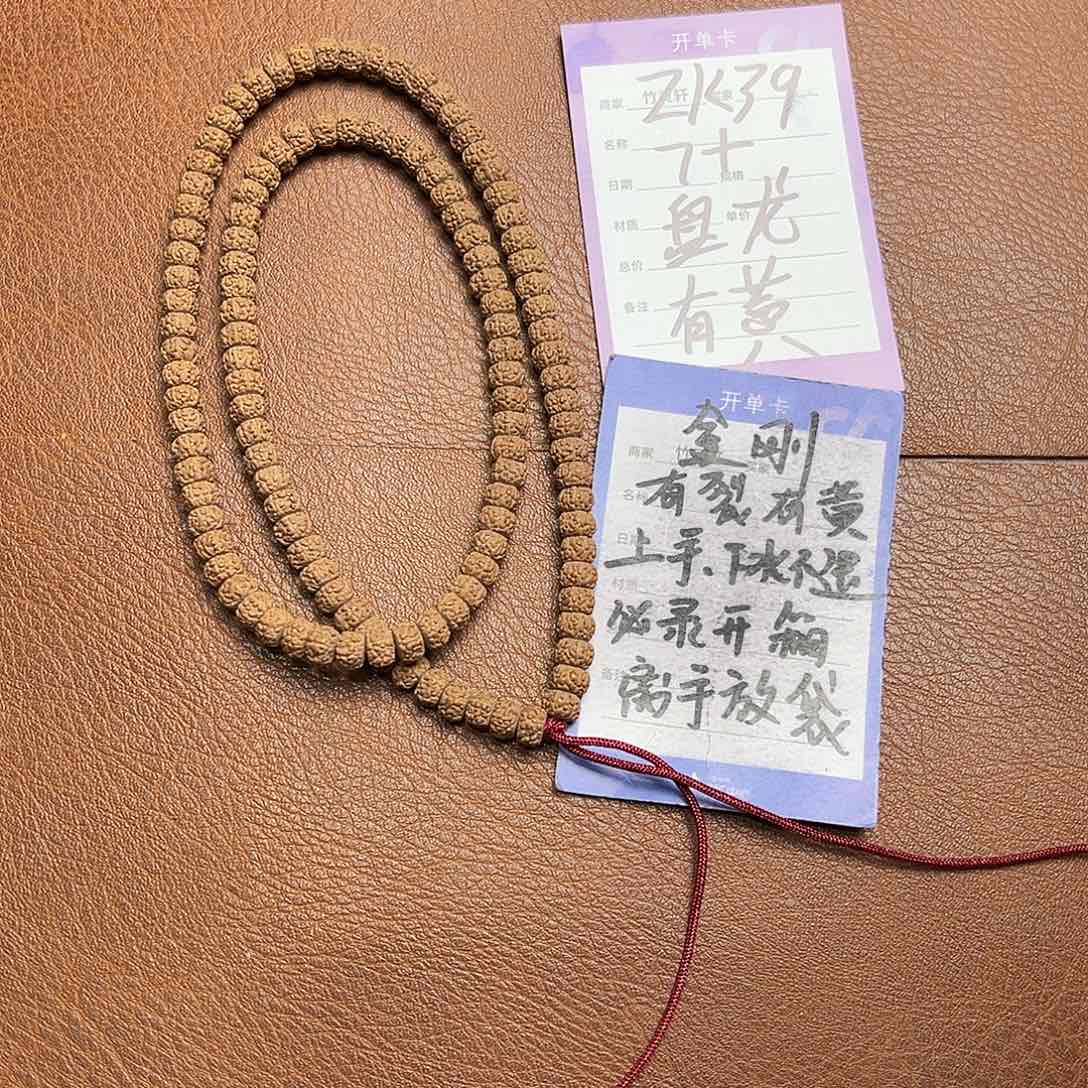 开单卡
ZK39
商家 竹 轩
名称
十
日期 规格
盘龙
材质 单价
总价
有黄
备注
开单卡
金刚
商家 竹
有裂有黄
名称
上手.下水不退
日期
材质
必录开箱
备注
离手放袋